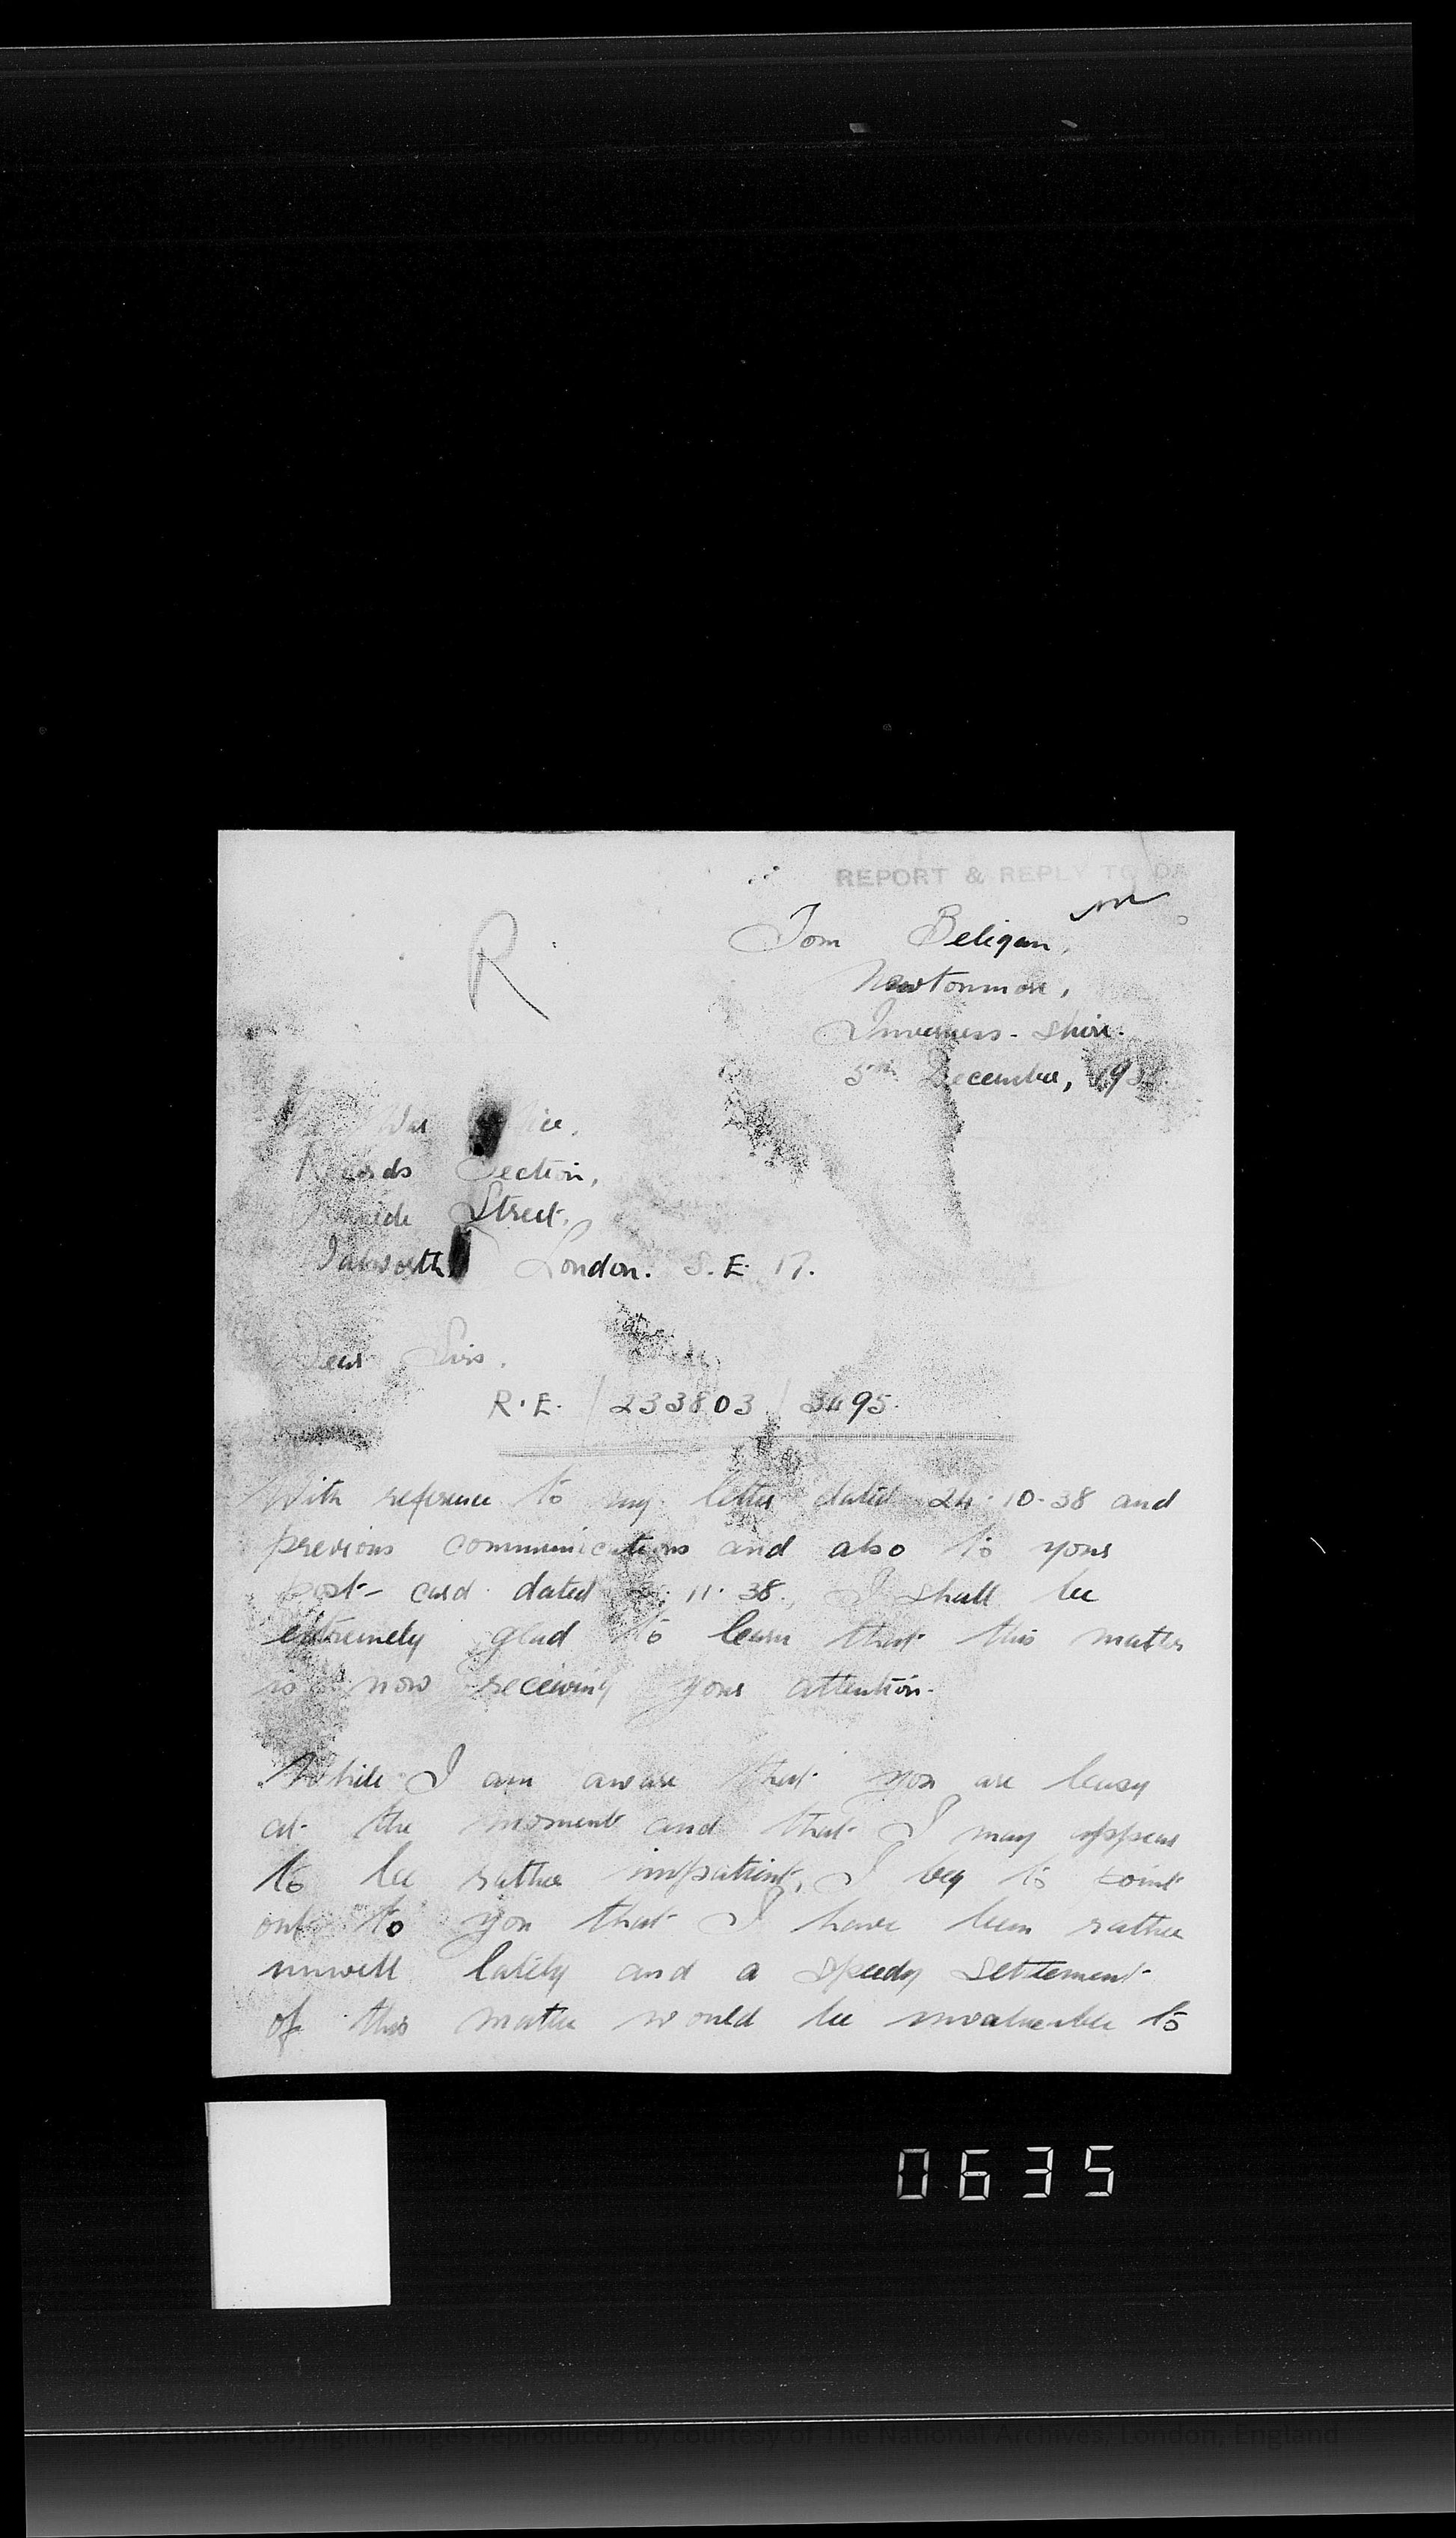 REPORT & REPLY TO DA
R
Tom Beligan,
Newtonmore,
Inverness-shire.
5th December, 193
War
Records Section,
Street,
London. S.E. 17.
Dear Sirs,
R.E. / 233803 / 3495.
With reference to my letter dated 24.10.38 and
previous communications and also to your
post-card dated 11.38., I shall be
extremely glad to learn that this matter
is now receiving your attention.
While I am aware that you are busy
at the moment and that I may appear
to be rather impatient, I beg to point
out to you that I have been rather
unwell lately and a speedy settlement
of this matter would be invaluable to
0635
Crown copyright images reproduced by courtesy of The National Archives, London, England